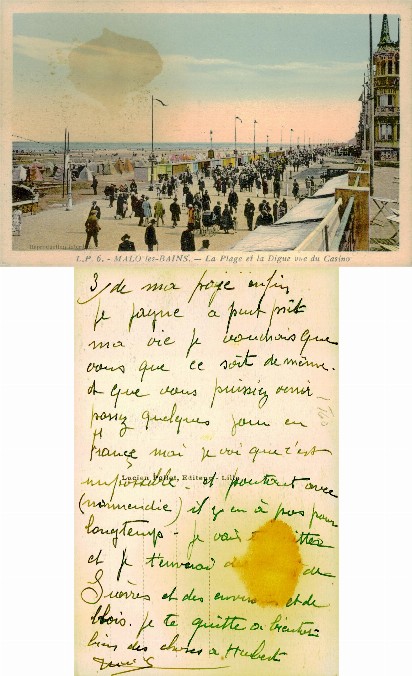 L.P. 6. - MALO-les-BAINS. — La Plage et la Digue vue du Casino
3/ de ma page enfin
je gagne a peut prêt
ma vie je voudrais que
vous que ce soit de même.
et que vous puissiez venir
passez quelques jour en
France moi je voi que c'est
impossible. et pourtant avec
Lucien Pollet, Editeur - Lille
(normandie) il y en à pas pour
longtemps - je vais
et je t'enverai de
et des et de
blois. je te quitte a bientot
bien des choses a Hubert